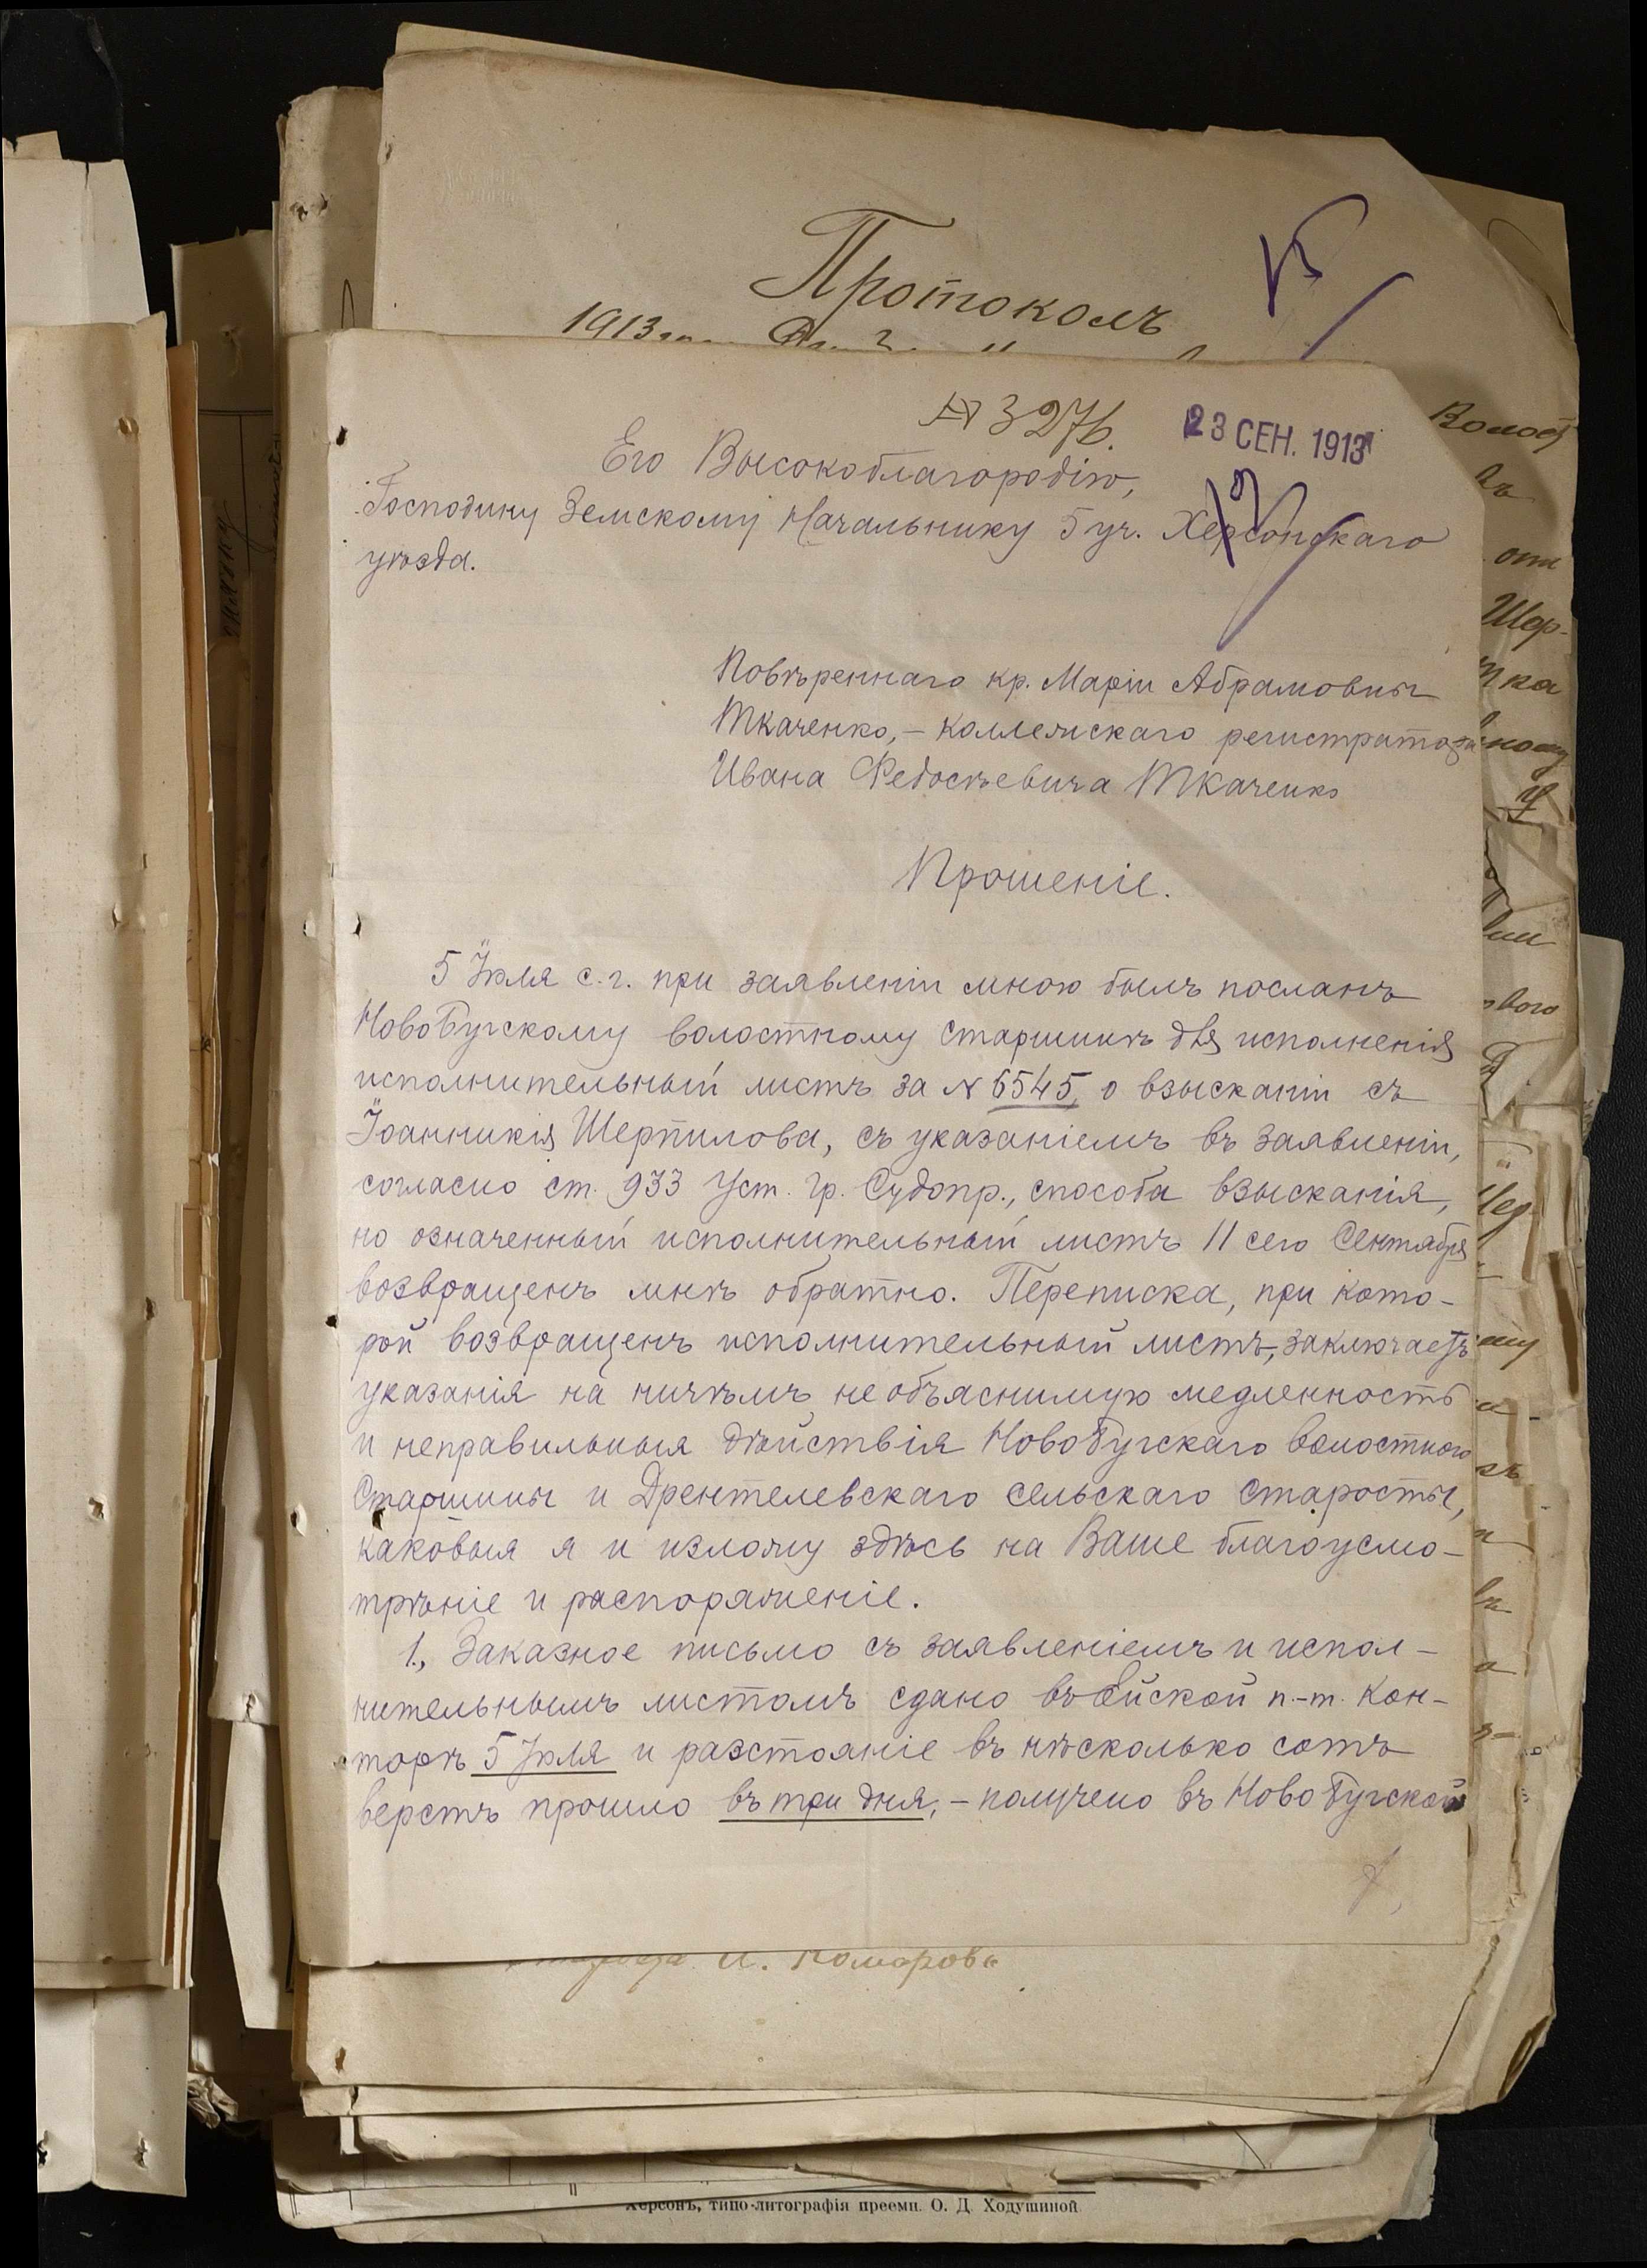 Протоколъ
1913
№ 3276.
23 СЕН. 1913
Его Высокоблагородію,
Господину Земскому Начальнику 5 уч. Херсонскаго
уѣзда.
Повѣреннаго кр. Маріи Абрамовны
Ткаченко, – коллежскаго регистратора
Ивана Федосѣевича Ткаченко
Прошеніе.
5 Іюля с. г. при заявленіи мною былъ посланъ
НовоБугскому волостному старшинѣ для исполненія
исполнительный листъ за № 6545, о взысканіи съ
Іоанникія Шерпилова, съ указаніемъ въ заявленіи,
согласно ст. 933 Уст. Гр. Судопр., способа взысканія,
но означенный исполнительный листъ 11 сего Сентября
возвращенъ мнѣ обратно. Переписка, при кото-
рой возвращенъ исполнительный листъ, заключаетъ
указанія на ничѣмъ необъяснимую медленность
и неправильныя дѣйствія Новобугскаго волостного
Старшины и Дрентелевскаго сельскаго старосты,
каковыя я и изложу здѣсь на Ваше благоусмо-
трѣніе и распоряженіе.
1., Заказное письмо съ заявленіемъ и испол-
нительнымъ листомъ сдано въ Ейской п.-т. кон-
торѣ 5 Іюля и разстояніе въ нѣсколько сотъ
верстъ прошло въ три дня, – получено въ НовоБугской
И. Комаровъ
Херсонъ, типо-литографія преемн. О. Д. Ходушиной